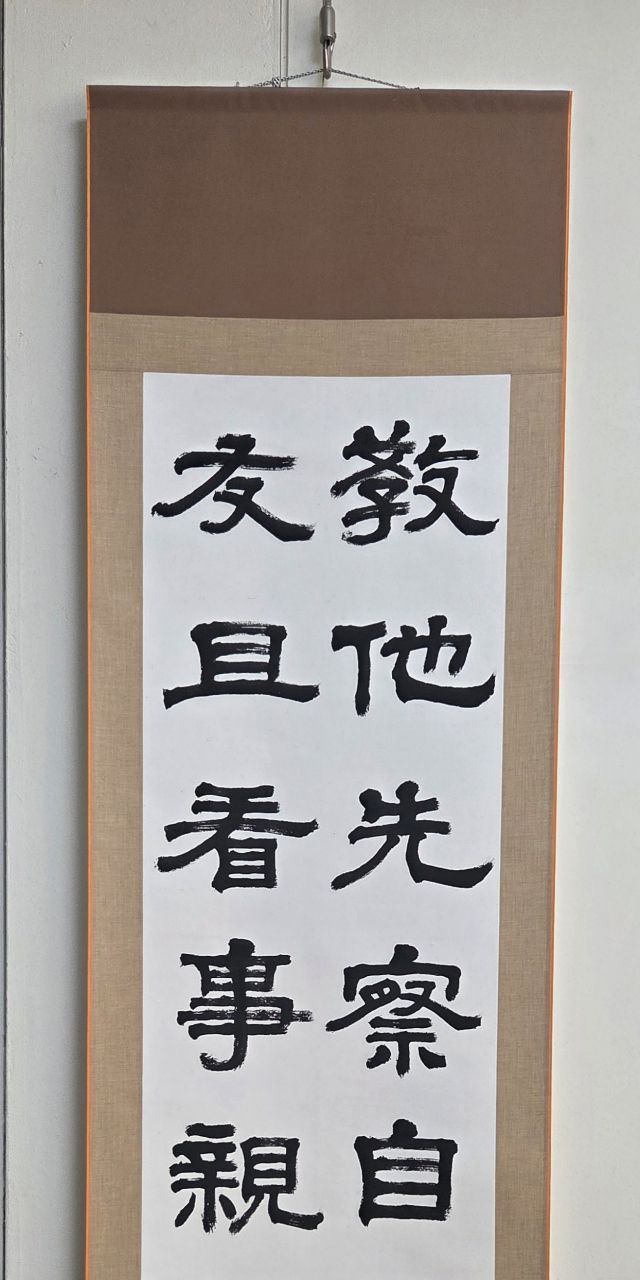 教他先察自
友且看事親